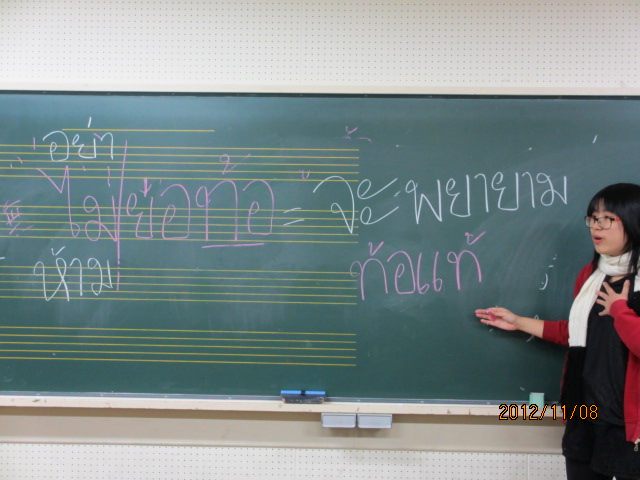 อย่า
ไม่ย่อท้อ = จะพยายาม
ห้าม
ท้อแท้
2012/11/08